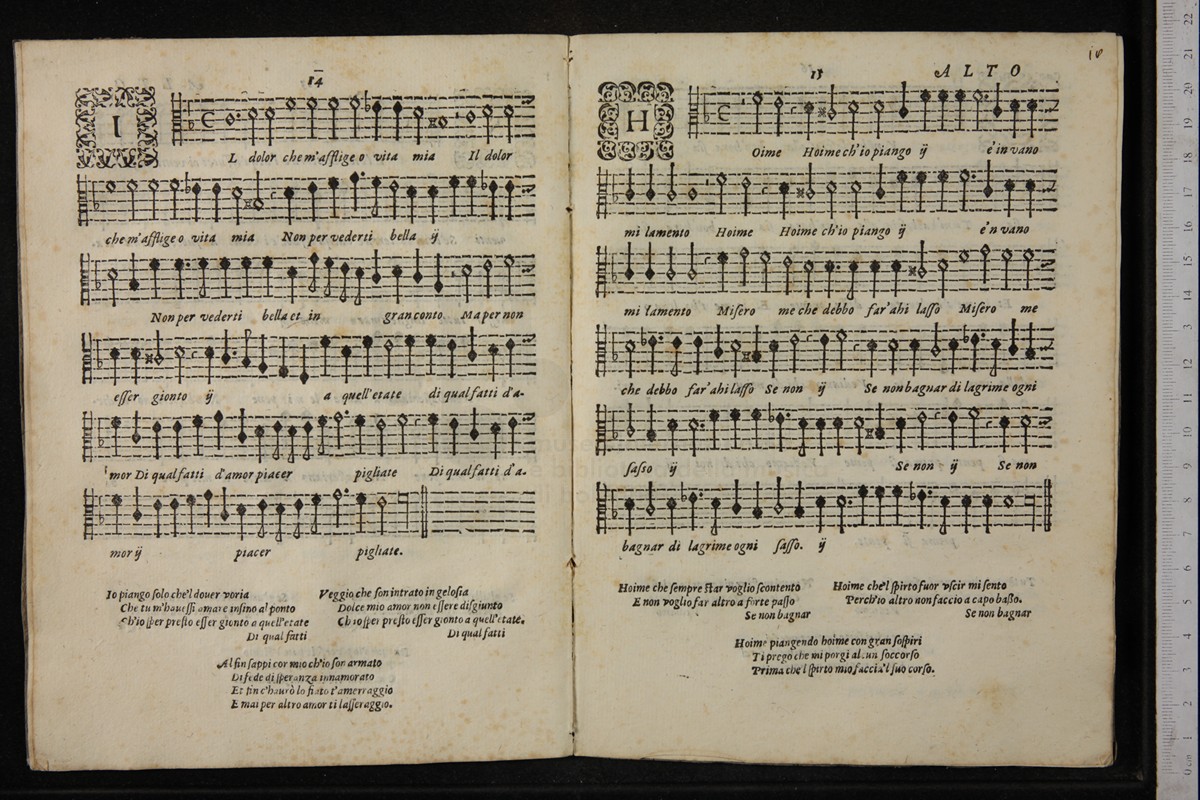 14
I
L dolor che m'afflige o vita mia Il dolor
che m'afflige o vita mia Non per vederti bella ij
Non per vederti bella et in gran conto. Ma per non
esser gionto ij a quell'etate di qual fatti d'a-
mor Di qual fatti d'amor piacer pigliate Di qual fatti d'a.
mor ij piacer pigliate.
Io piango solo che'l dover voria
Che tu m'havessi amare insino al ponto
Ch'io sper presto esser gionto a quell'etate
Di qual fatti
Veggio che son intrato in gelosia
Dolce mio amor non essere disgiunto
Ch'io sper presto esser gionto a quell'etate.
Di qual fatti
Al fin sappi cor mio ch'io son armato
Di fede di speranza innamorato
Et fin c'haurò lo fiato t'amerraggio
E mai per altro amor ti lasseraggio.
15
ALTO
H
Oime Hoime ch'io piango ij e'in vano
mi lamento Hoime Hoime ch'io piango ij e'n vano
mi lamento Misero me che debbo far'ahi lasso Misero me
che debbo far'ahi lasso Se non ij Se non bagnar di lagrime ogni
sasso ij Se non ij Se non
bagnar di lagrime ogni sasso. ij
Hoime che sempre star voglio scontento
E non voglio far altro a forte passo
Se non bagnar
Hoime che'l spirto fuor vscir mi sento
Perch'io altro non faccio a capo basso.
Se non bagnar
Hoime piangendo hoime con gran sospiri
Ti prego che mi porgi alcun soccorso
Prima che'l spirto mio faccia'l suo corso.